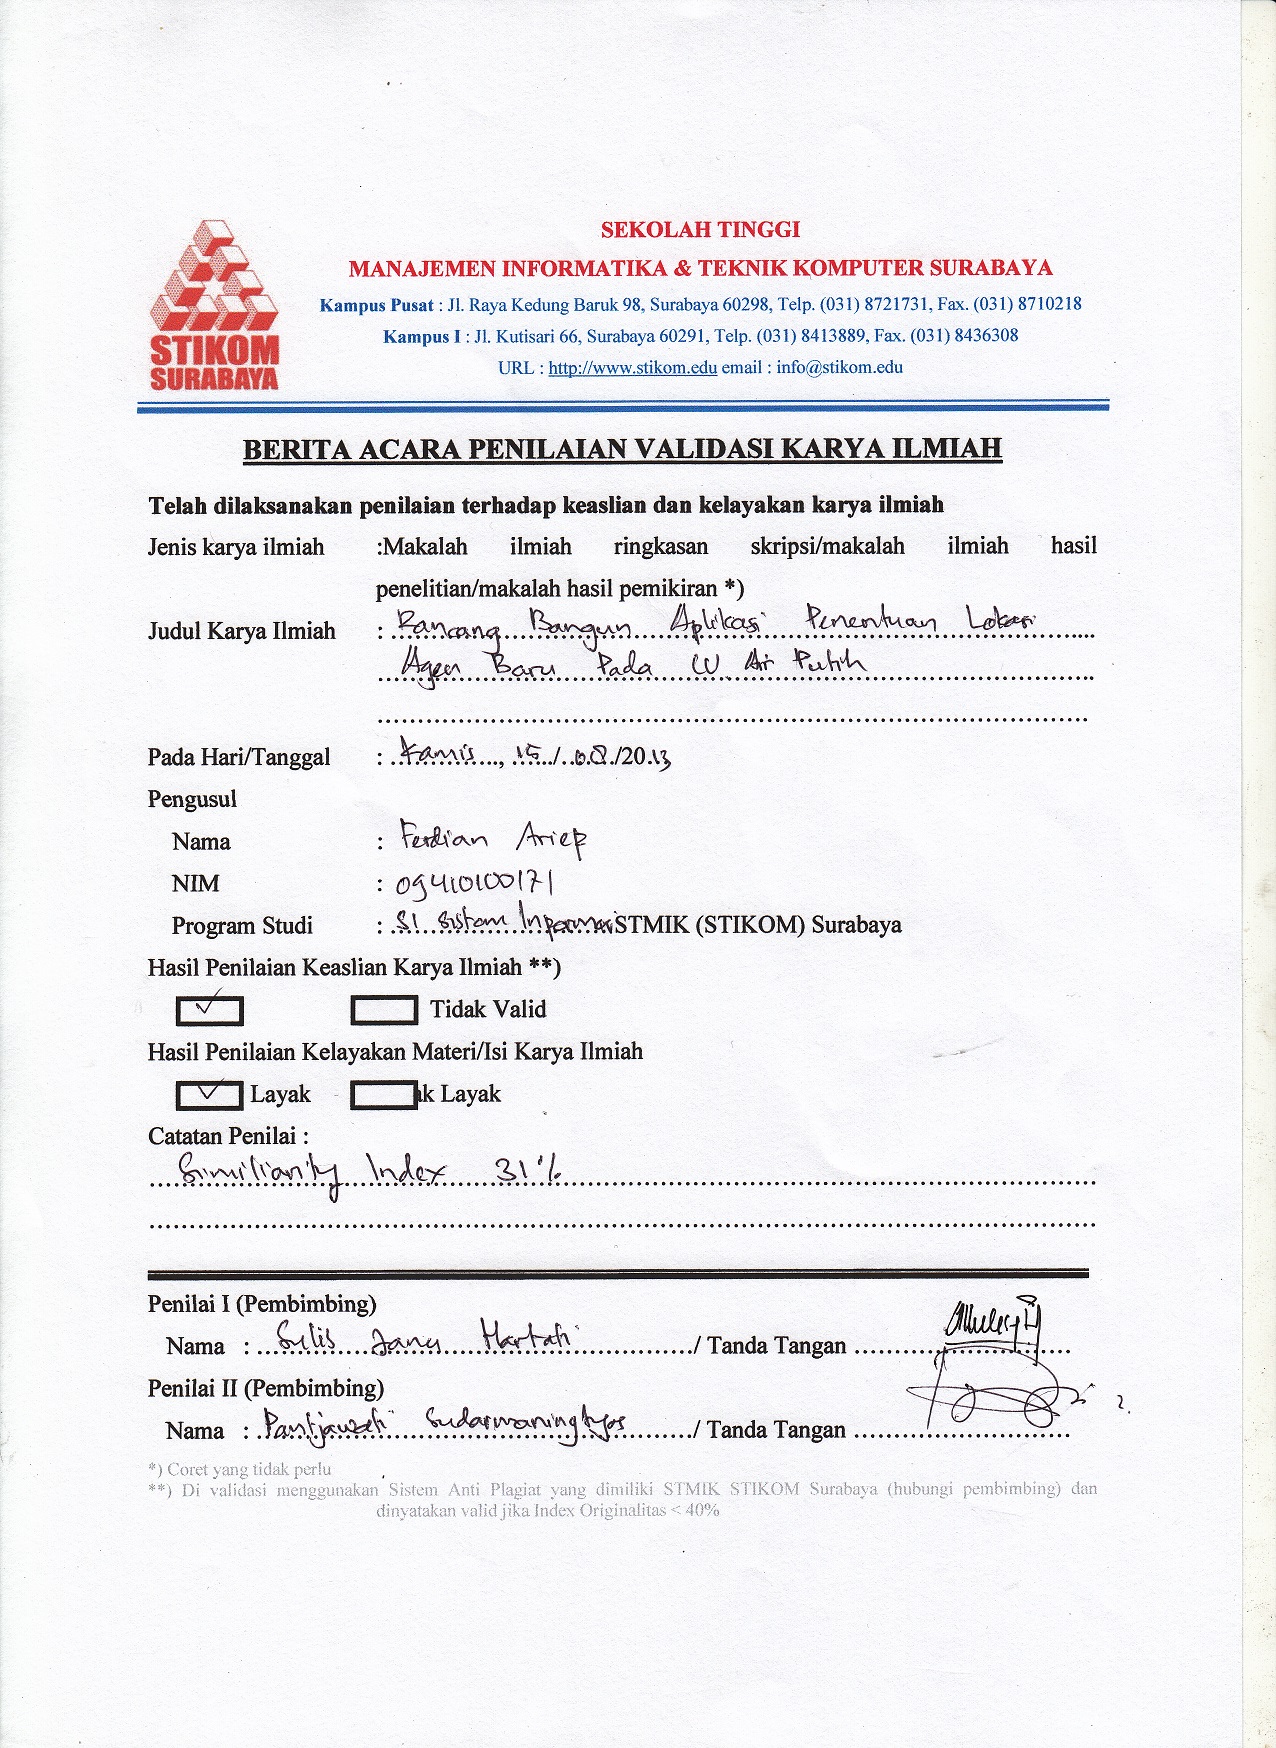 SEKOLAH TINGGI
MANAJEMEN INFORMATIKA & TEKNIK KOMPUTER SURABAYA
Kampus Pusat : Jl. Raya Kedung Baruk 98, Surabaya 60298, Telp. (031) 8721731, Fax. (031) 8710218
Kampus I : Jl. Kutisari 66, Surabaya 60291, Telp. (031) 8413889, Fax. (031) 8436308
URL : http://www.stikom.edu email : info@stikom.edu
STIKOM
SURABAYA
BERITA ACARA PENILAIAN VALIDASI KARYA ILMIAH
Telah dilaksanakan penilaian terhadap keaslian dan kelayakan karya ilmiah
Jenis karya ilmiah :Makalah ilmiah ringkasan skripsi/makalah ilmiah hasil
penelitian/makalah hasil pemikiran *)
Judul Karya Ilmiah : Rancang Bangun Aplikasi Penentuan Lokasi
Agen Baru Pada CV. Air Putih
Pada Hari/Tanggal : Kamis, 15/08/2013
Pengusul
Nama : Ferdian Arief
NIM : 09410100171
Program Studi : S1 Sistem Informasi STMIK (STIKOM) Surabaya
Hasil Penilaian Keaslian Karya Ilmiah **)
Tidak Valid
Hasil Penilaian Kelayakan Materi/Isi Karya Ilmiah
Layak k Layak
Catatan Penilai :
Similianity Index 31%
Penilai I (Pembimbing)
Nama : Sulis Janu Hartati / Tanda Tangan
Penilai II (Pembimbing)
Nama : Pantjawati Sudarmaningtyas / Tanda Tangan
*) Coret yang tidak perlu
**) Di validasi menggunakan Sistem Anti Plagiat yang dimiliki STMIK STIKOM Surabaya (hubungi pembimbing) dan
dinyatakan valid jika Index Originalitas < 40%